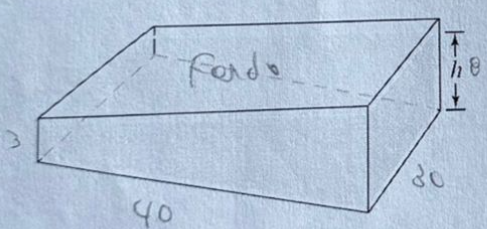 Fondo
h 8
3
30
40